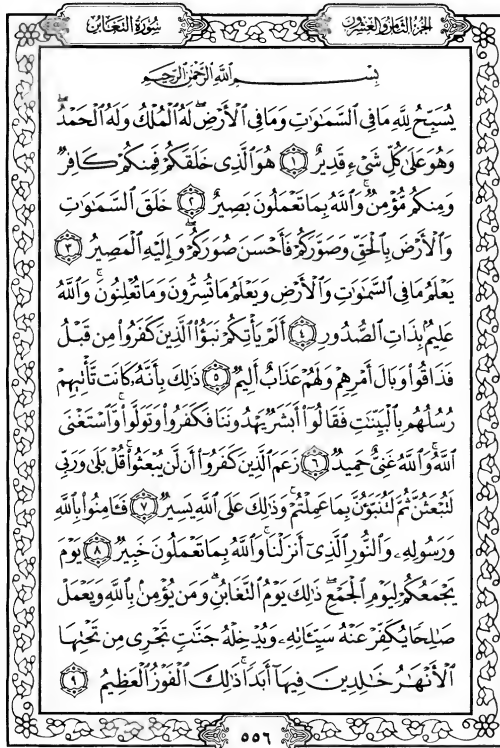 الجزء الثامن والعشرون
سورة التغابن
بِسْمِ اللَّهِ الرَّحْمَٰنِ الرَّحِيمِ
يُسَبِّحُ لِلَّهِ مَا فِي السَّمَٰوَٰتِ وَمَا فِي الْأَرْضِ ۖ لَهُ الْمُلْكُ وَلَهُ الْحَمْدُ ۖ
وَهُوَ عَلَىٰ كُلِّ شَيْءٍ قَدِيرٌ ١ هُوَ الَّذِي خَلَقَكُمْ فَمِنكُمْ كَافِرٌ
وَمِنكُم مُّؤْمِنٌ ۚ وَاللَّهُ بِمَا تَعْمَلُونَ بَصِيرٌ ٢ خَلَقَ السَّمَٰوَٰتِ
وَالْأَرْضَ بِالْحَقِّ وَصَوَّرَكُمْ فَأَحْسَنَ صُوَرَكُمْ ۖ وَإِلَيْهِ الْمَصِيرُ ٣
يَعْلَمُ مَا فِي السَّمَٰوَٰتِ وَالْأَرْضِ وَيَعْلَمُ مَا تُسِرُّونَ وَمَا تُعْلِنُونَ ۚ وَاللَّهُ
عَلِيمٌ بِذَاتِ الصُّدُورِ ٤ أَلَمْ يَأْتِكُمْ نَبَؤُا الَّذِينَ كَفَرُوا مِن قَبْلُ
فَذَاقُوا وَبَالَ أَمْرِهِمْ وَلَهُمْ عَذَابٌ أَلِيمٌ ٥ ذَٰلِكَ بِأَنَّهُ كَانَت تَّأْتِيهِمْ
رُسُلُهُم بِالْبَيِّنَٰتِ فَقَالُوا أَبَشَرٌ يَهْدُونَنَا فَكَفَرُوا وَتَوَلَّوا ۚ وَّاسْتَغْنَى
اللَّهُ ۚ وَاللَّهُ غَنِيٌّ حَمِيدٌ ٦ زَعَمَ الَّذِينَ كَفَرُوا أَن لَّن يُبْعَثُوا ۚ قُلْ بَلَىٰ وَرَبِّي
لَتُبْعَثُنَّ ثُمَّ لَتُنَبَّؤُنَّ بِمَا عَمِلْتُمْ ۚ وَذَٰلِكَ عَلَى اللَّهِ يَسِيرٌ ٧ فَـَٔامِنُوا بِاللَّهِ
وَرَسُولِهِ وَالنُّورِ الَّذِي أَنزَلْنَا ۚ وَاللَّهُ بِمَا تَعْمَلُونَ خَبِيرٌ ٨ يَوْمَ
يَجْمَعُكُمْ لِيَوْمِ الْجَمْعِ ۖ ذَٰلِكَ يَوْمُ التَّغَابُنِ ۗ وَمَن يُؤْمِن بِاللَّهِ وَيَعْمَلْ
صَٰلِحًا يُكَفِّرْ عَنْهُ سَيِّـَٔاتِهِ وَيُدْخِلْهُ جَنَّٰتٍ تَجْرِي مِن تَحْتِهَا
الْأَنْهَٰرُ خَٰلِدِينَ فِيهَا أَبَدًا ۚ ذَٰلِكَ الْفَوْزُ الْعَظِيمُ ٩
٥٥٦